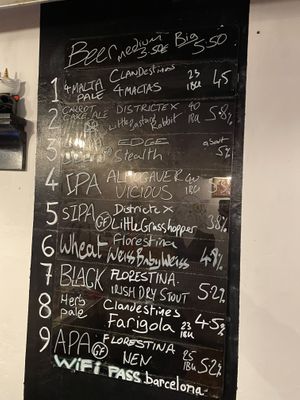 Beer medium 3.50€ Big 5.50
1 4 MALTA PALE CLANDESTINES 4 MALTAS 23 IBU 4.5
2 CARROT CAKE ALE DISTRICTE X Little Bastard Rabbit 40 IBU 5.8%
3 EDGE Stealth about 5%
4 IPA VICIOUS IBU
5 SIPA GF Districte X Little Grasshopper 3.8%
6 Wheat Florestina Weiss Baby Weiss 4.8%
7 BLACK FLORESTINA. IRISH DRY STOUT 5.2%
8 Herb pale Clandestines Farigola 23 IBU 4.5%
9 APA GF FLORESTINA NEN 25 IBU 5.2%
WiFi PASS. barcelona